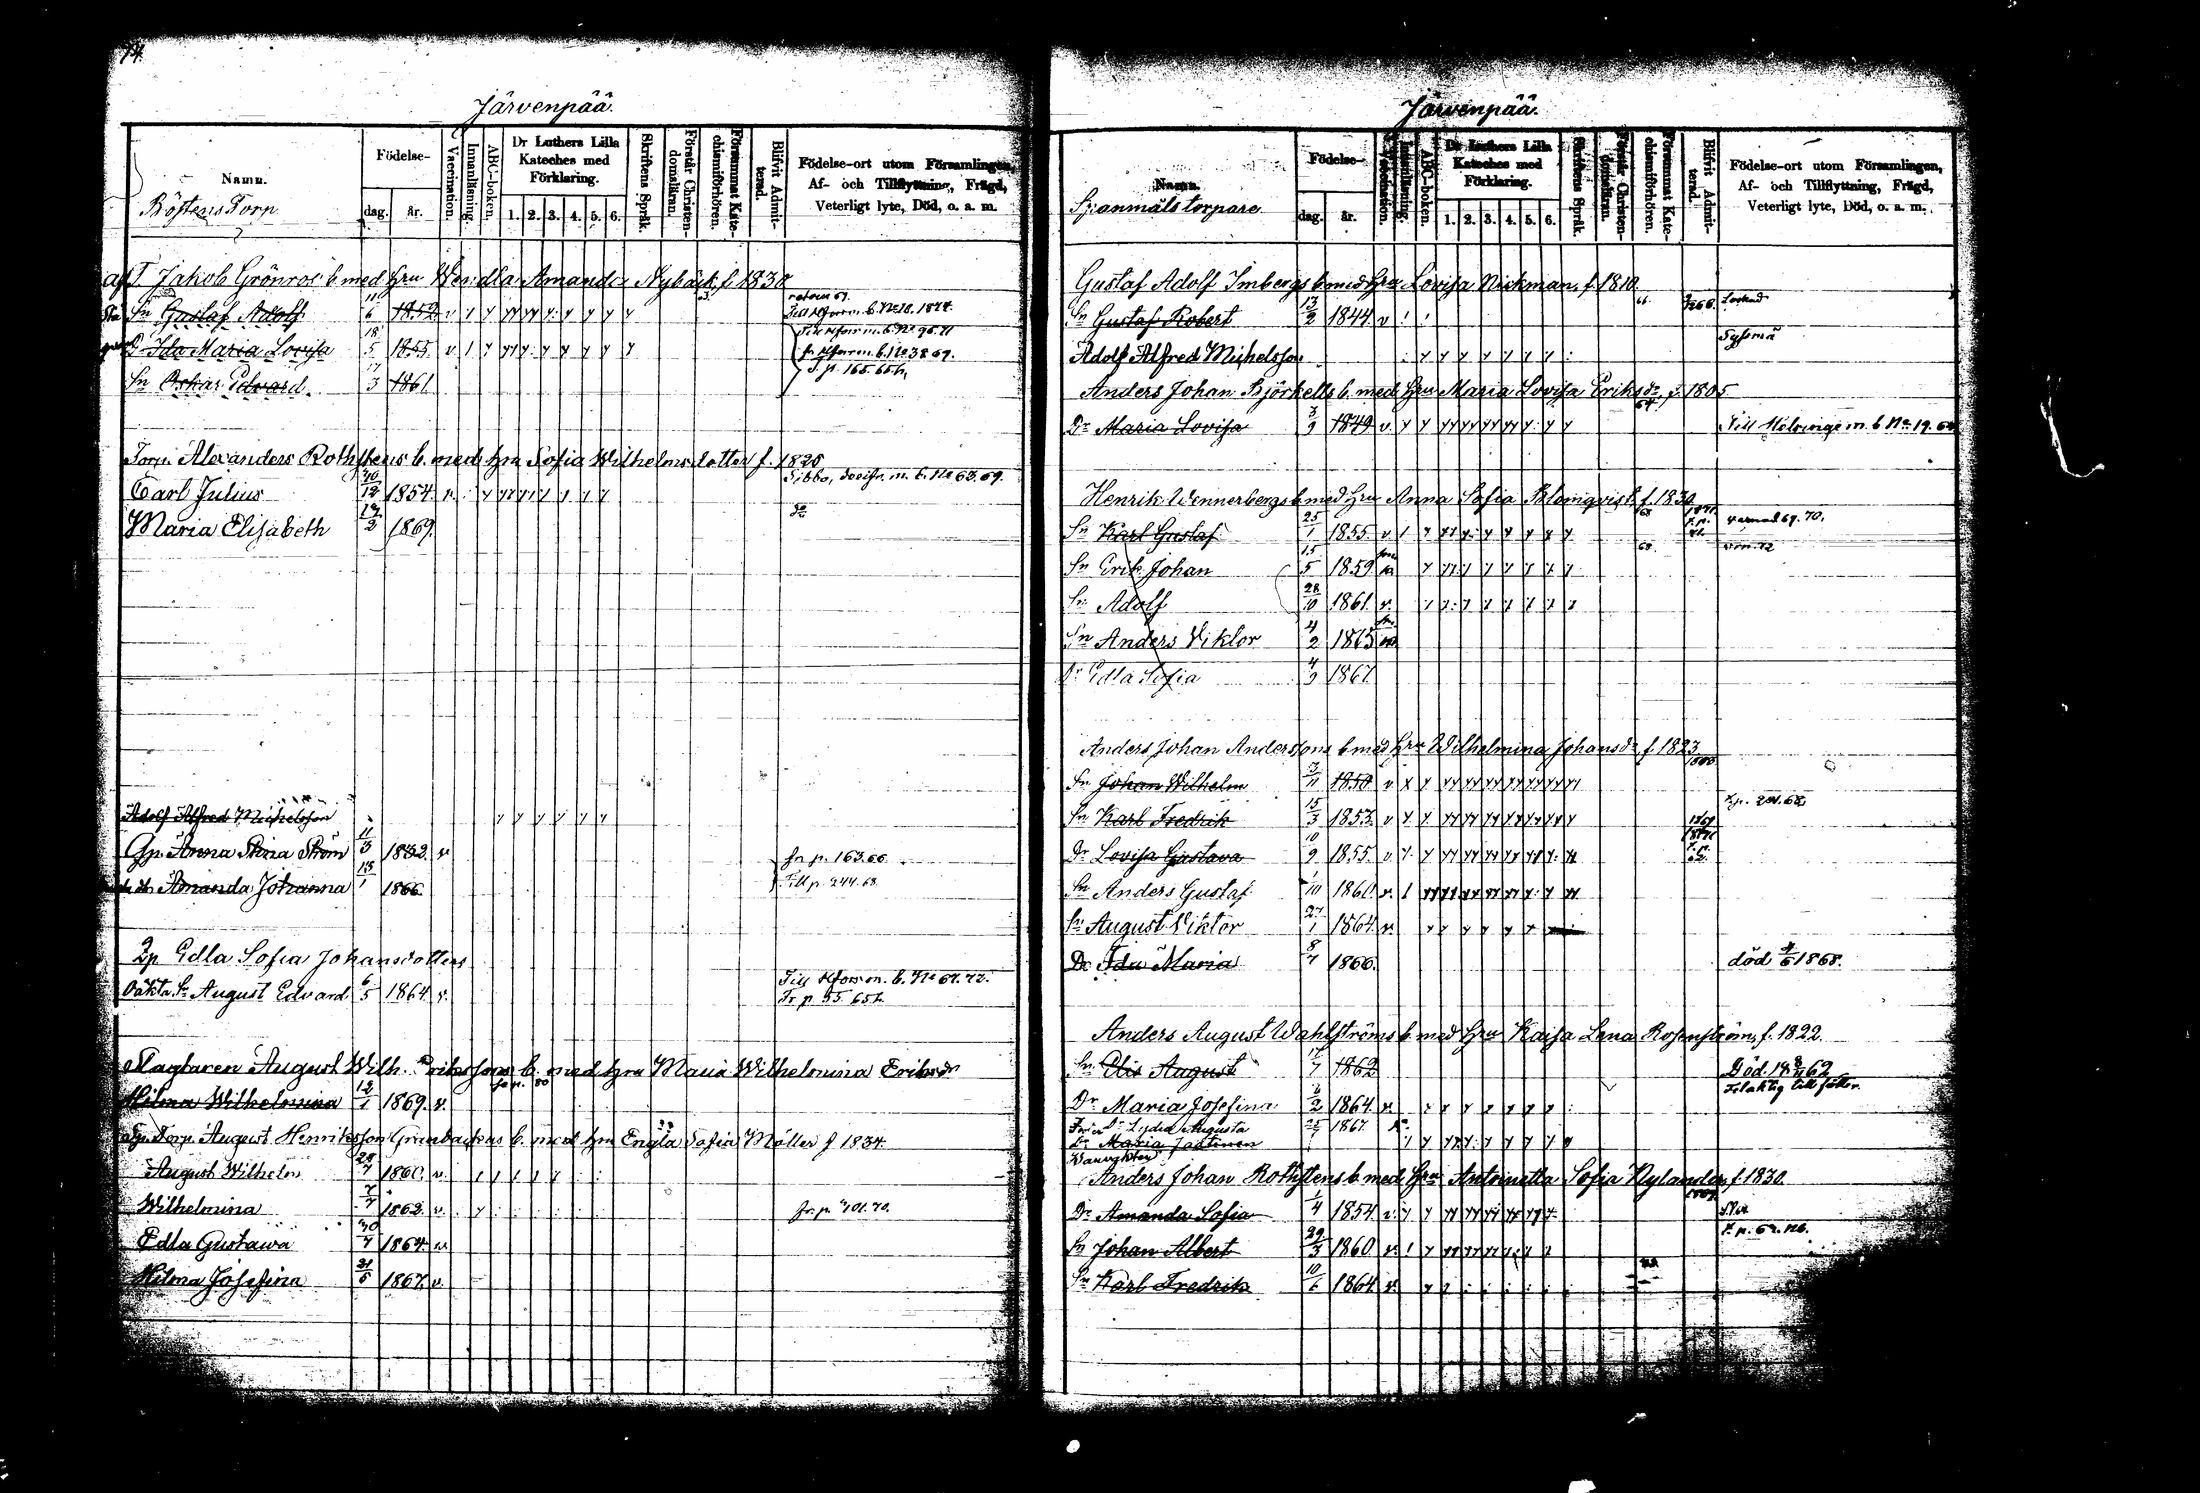 74.
Järvenpää.
Namn.
Födelse-
dag.
år.
Vaccination.
Innanläsning.
ABC-boken.
Dr Luthers Lilla
Kateches med
Förklaring.
1. 2. 3. 4. 5. 6.
Skriftens Språk.
Förstår Christen-
domsläran.
Försummat Kate-
chismiförhören.
Blifvit Admit-
terad.
Födelse-ort utom Församlingen,
Af- och Tillflyttning, Frägd,
Veterligt lyte, Död, o. a. m.
Röstens Torp
af T Jakob Grönroos b med hru Wendla Amanda Nybäck f. 1830
Sn Gustaf Adolf 11/6 1852 v
Till Hfors m. b. No 18. 1874.
Dr Ida Maria Lovisa 18/5 1855 v
Till Hfors m. b. No 96. 71
fr Hfors m. b. No 38 69.
Sn Oskar Edvard 17/3 1861
T. p. 165. 65
Torp. Alexanders Rothstens b. med hru Sofia Wilhelmsdotter f. 1828
Carl Julius 1854 v.
Sibbo, m. b. No 63. 69.
Maria Elisabeth 1869.
do
Adolf Alfred Michelsson
Gp. Anna Stina Ström 11/3 1832 v
fr p. 163. 66
Amanda Johanna 13/1 1866.
Till p. 244. 68
Edla Sofia Johansdotters
oäkta Sn August Edvard 6/5 1864 v.
Till Hfors m. b. No 67. 73.
Fr p. 55. 65
Slagtaren August Wilh. Erikssons b. med hru Maria Wilhelmina Eriksdr
Hilma Wilhelmina 12/1 1869. v.
Torp. August Henriksson Grundackas b. med hru Engla Sofia Möller f 1834.
August Wilhelm 28/7 1860. v
Wilhelmina 1862. v.
fr. p. 101. 70.
Edla Gustawa 1864 v
Hilma Josefina 21/5 1867. v.
Järvenpää.
Namn.
Födelse-
dag.
år.
Vaccination.
Innanläsning.
ABC-boken.
Dr Luthers Lilla
Kateches med
Förklaring.
1. 2. 3. 4. 5. 6.
Skriftens Språk.
Förstår Christen-
domsläran.
Försummat Kate-
chismiförhören.
Blifvit Admit-
terad.
Födelse-ort utom Församlingen,
Af- och Tillflyttning, Frägd,
Veterligt lyte, Död, o. a. m.
Spanmålstorpare
Gustaf Adolf Imbergs b med hru Lovisa Nickman, f. 1810
Sn Gustaf Robert 13/2 1844 v
Adolf Alfred Michelsson
Sysmä
Anders Johan Björkells b. med hru Maria Lovisa Eriksdr, f. 1805
Dr Maria Lovisa 3/9 1849 v.
Till Helsinge m. b No 19. 64
Henrik Wennerbergs b med hru Anna Sofia Blomqvist f. 1830
Sn Karl Gustaf 25/1 1855 v
Sn Erik Johan 15/5 1859
Sn Adolf 28/10 1861 v.
Sn Anders Viktor 4/2 1865
Dr Edla Sofia 4/9 1867
Anders Johan Anderssons b med hru Wilhelmina Johansdr, f. 1823
Sn Johan Wilhelm 3/11 1850 v
Sn Karl Fredrik 15/3 1853. v
Dr Lovisa Gustava 10/9 1855. v
Sn Anders Gustaf 1/10 1860. v.
Sn August Viktor 27/1 1864. v.
Dr Ida Maria 8/7 1866.
död 4/6 1868.
Anders August Wahlströms b. med hru Kaisa Lena Rosenström, f. 1822.
Sn Elis August 17/7 1862
Död. 18 8/11 62
Dr Maria Josefina 6/2 1864. v.
Dr Lydia Augusta 1867.
Maria Jaatinen
Anders Johan Rothstens b med hru Antoinetta Sofia Nylander, f. 1830.
Dr Amanda Sofia 1/4 1854 v.
Sn Johan Albert 29/3 1860 v.
Sn Karl Fredrik 10/6 1864 v.